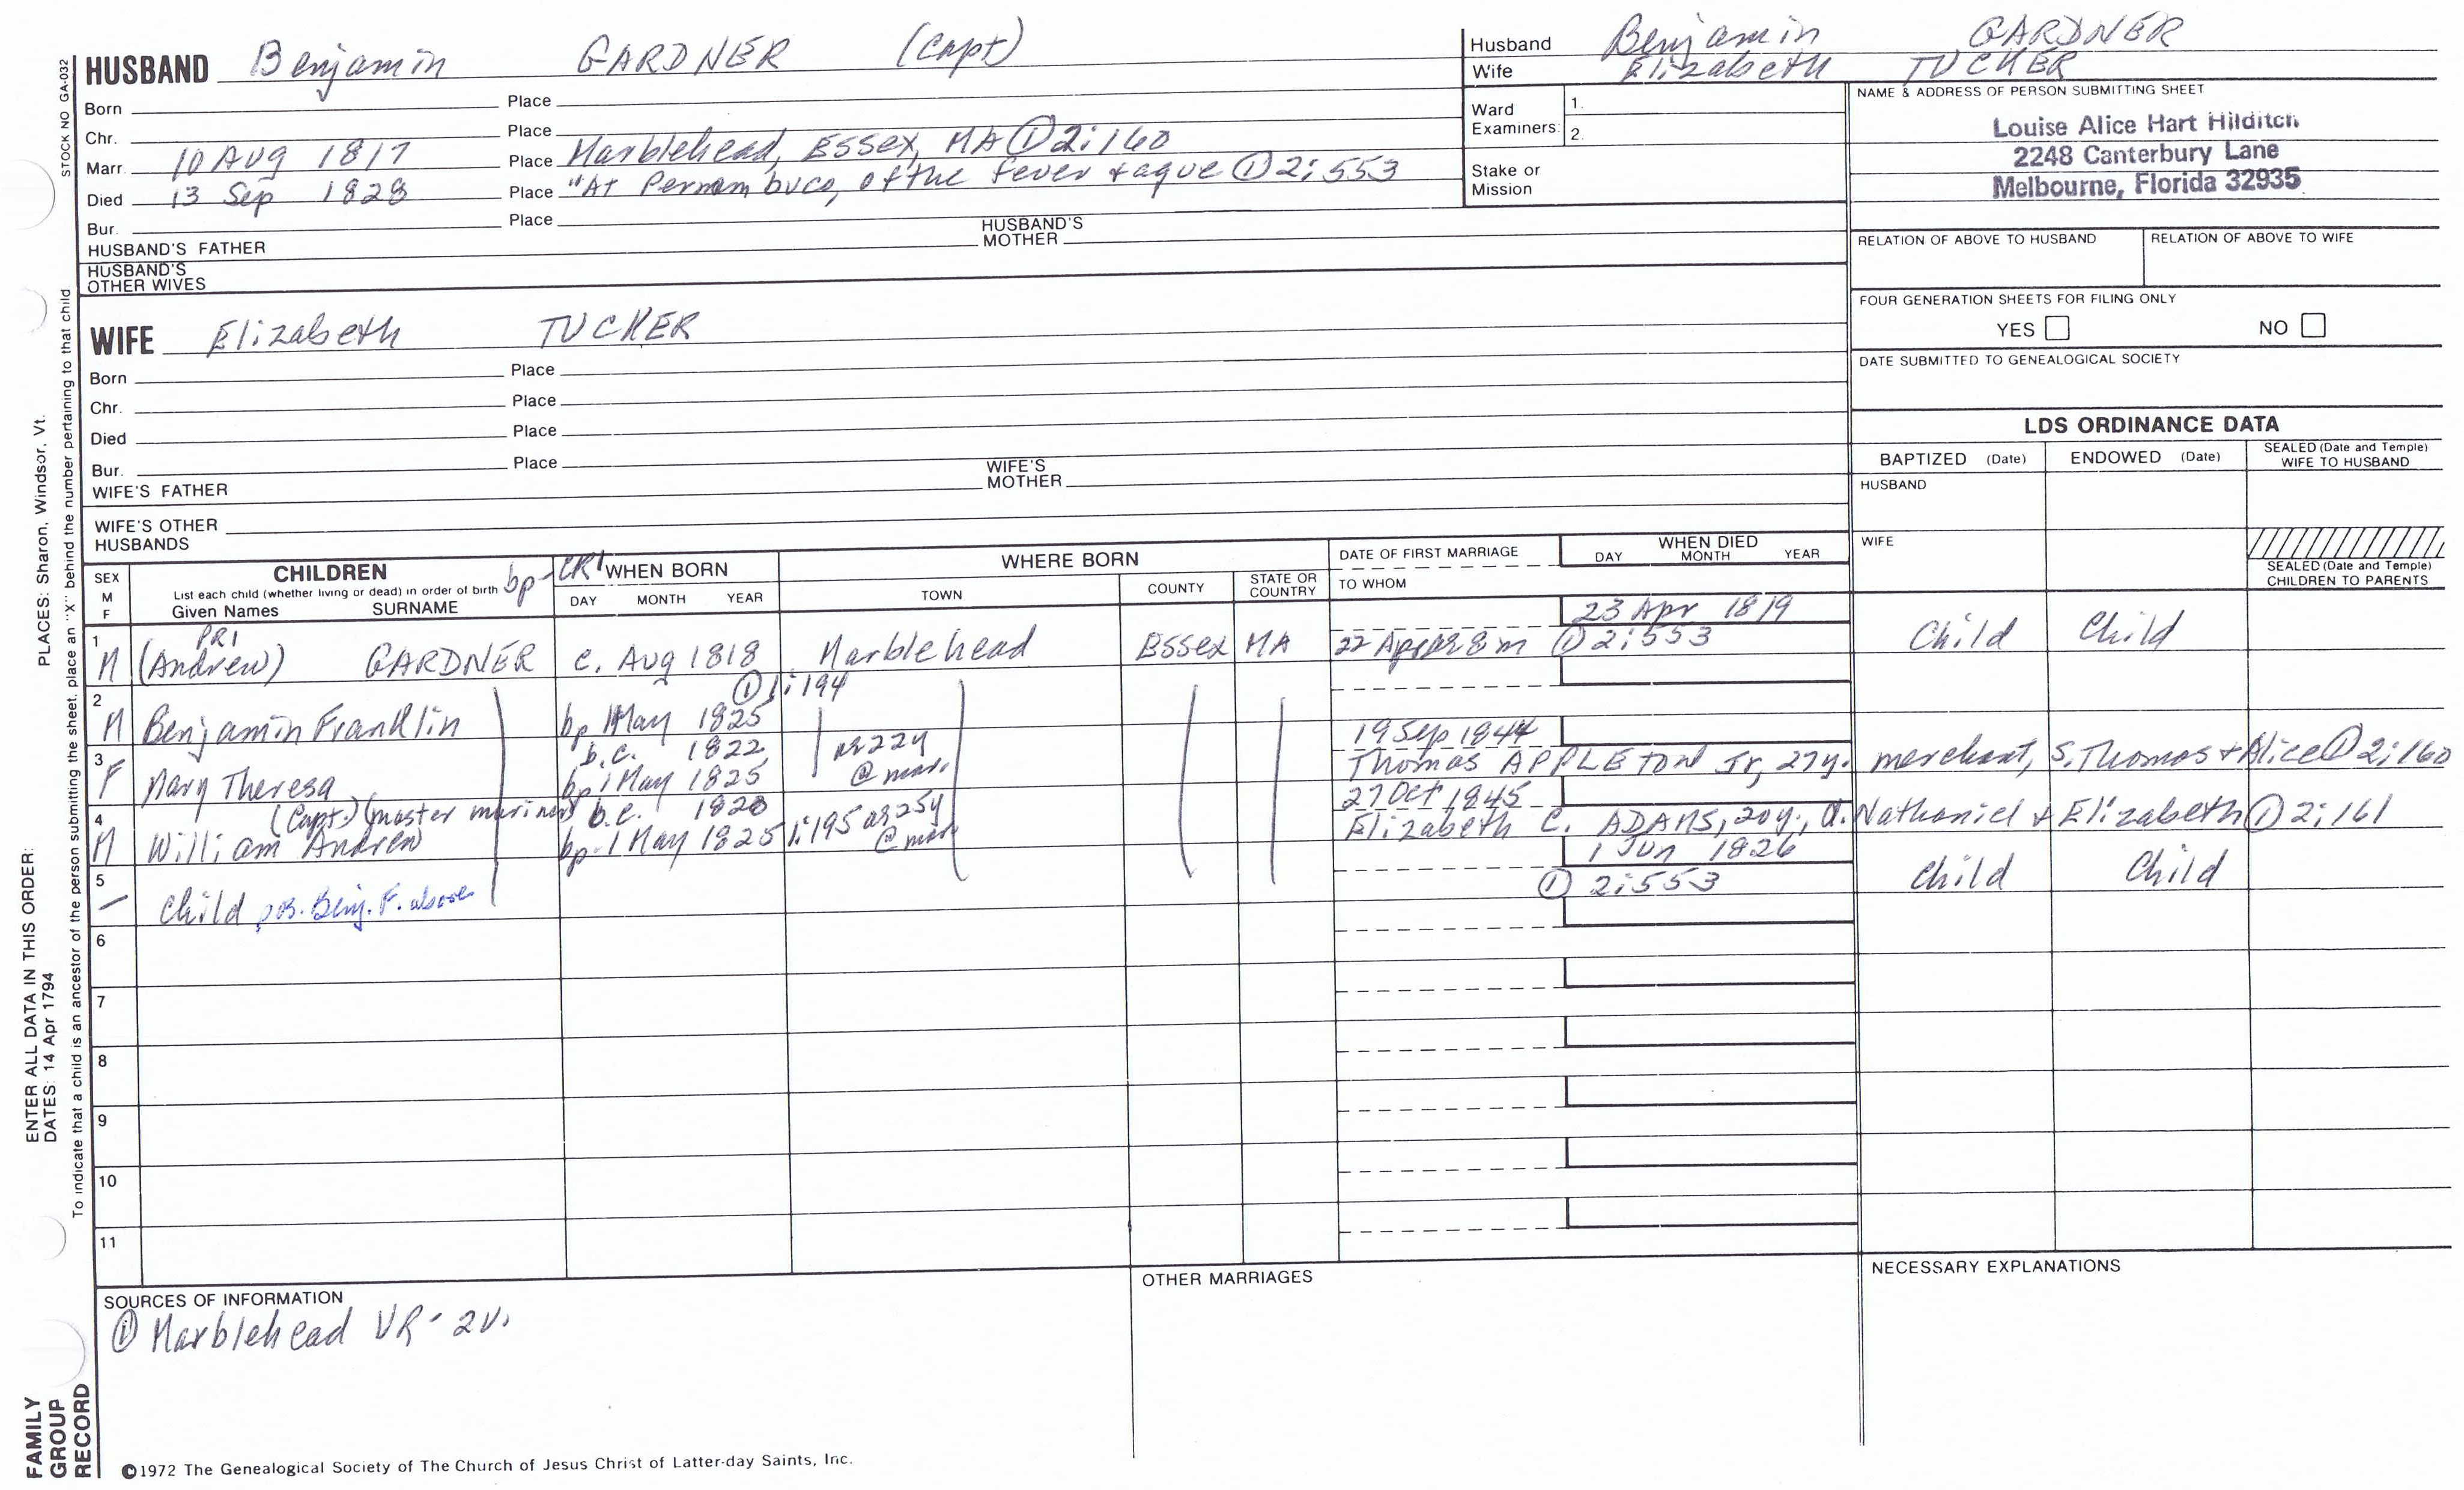 HUSBAND Benjamin GARDNER (Capt)
Born Place
Chr. Place
Marr. 10 Aug 1817 Place Marblehead, Essex, MA ① 2:160
Died 13 Sep 1828 Place "At Pernambuco, of the fever & ague ① 2:553
Bur. Place
HUSBAND'S FATHER HUSBAND'S MOTHER
HUSBAND'S OTHER WIVES
WIFE Elizabeth TUCKER
Born Place
Chr. Place
Died Place
Bur. Place
WIFE'S FATHER WIFE'S MOTHER
WIFE'S OTHER HUSBANDS
Husband Benjamin GARDNER
Wife Elizabeth TUCKER
Ward Examiners: 1.
2.
Stake or Mission
NAME & ADDRESS OF PERSON SUBMITTING SHEET
Louise Alice Hart Hilditch
2248 Canterbury Lane
Melbourne, Florida 32935
RELATION OF ABOVE TO HUSBAND RELATION OF ABOVE TO WIFE
FOUR GENERATION SHEETS FOR FILING ONLY
YES NO
DATE SUBMITTED TO GENEALOGICAL SOCIETY
LDS ORDINANCE DATA
BAPTIZED (Date) ENDOWED (Date) SEALED (Date and Temple) WIFE TO HUSBAND
HUSBAND
WIFE
SEALED (Date and Temple) CHILDREN TO PARENTS
SEX M F
CHILDREN
List each child (whether living or dead) in order of birth
Given Names SURNAME
bp-CR1 WHEN BORN
DAY MONTH YEAR
WHERE BORN
TOWN COUNTY STATE OR COUNTRY
DATE OF FIRST MARRIAGE
TO WHOM
WHEN DIED
DAY MONTH YEAR
PR1 23 Apr 1819
1 M (Andrew) GARDNER c. Aug 1818 Marblehead Essex MA 22 Apr 8 m ① 2:553 Child Child
① 1:194
2 M Benjamin Franklin bp 1 May 1825
b.c. 1822 ae 22y 19 Sep 1844
3 F Mary Theresa bp 1 May 1825 @ marr. Thomas APPLETON Jr, 27y. merchant, S. Thomas & Alice ① 2:160
(Capt.) (master mariner) b.c. 1820 ae 25y 27 Oct 1845
4 M William Andrew bp 1 May 1825 1:195 @ marr Elizabeth C. ADAMS, 20y., d. Nathaniel & Elizabeth ① 2:161
1 Jun 1826
5 – Child pos. Benj. F. above ① 2:553 Child Child
6
7
8
9
10
11
SOURCES OF INFORMATION
① Marblehead VR - 2v.
OTHER MARRIAGES
NECESSARY EXPLANATIONS
©1972 The Genealogical Society of The Church of Jesus Christ of Latter-day Saints, Inc.
STOCK NO GA-032
To indicate that a child is an ancestor of the person submitting the sheet, place an "X" behind the number pertaining to that child
PLACES: Sharon, Windsor, Vt.
ENTER ALL DATA IN THIS ORDER:
DATES: 14 Apr 1794
FAMILY GROUP RECORD